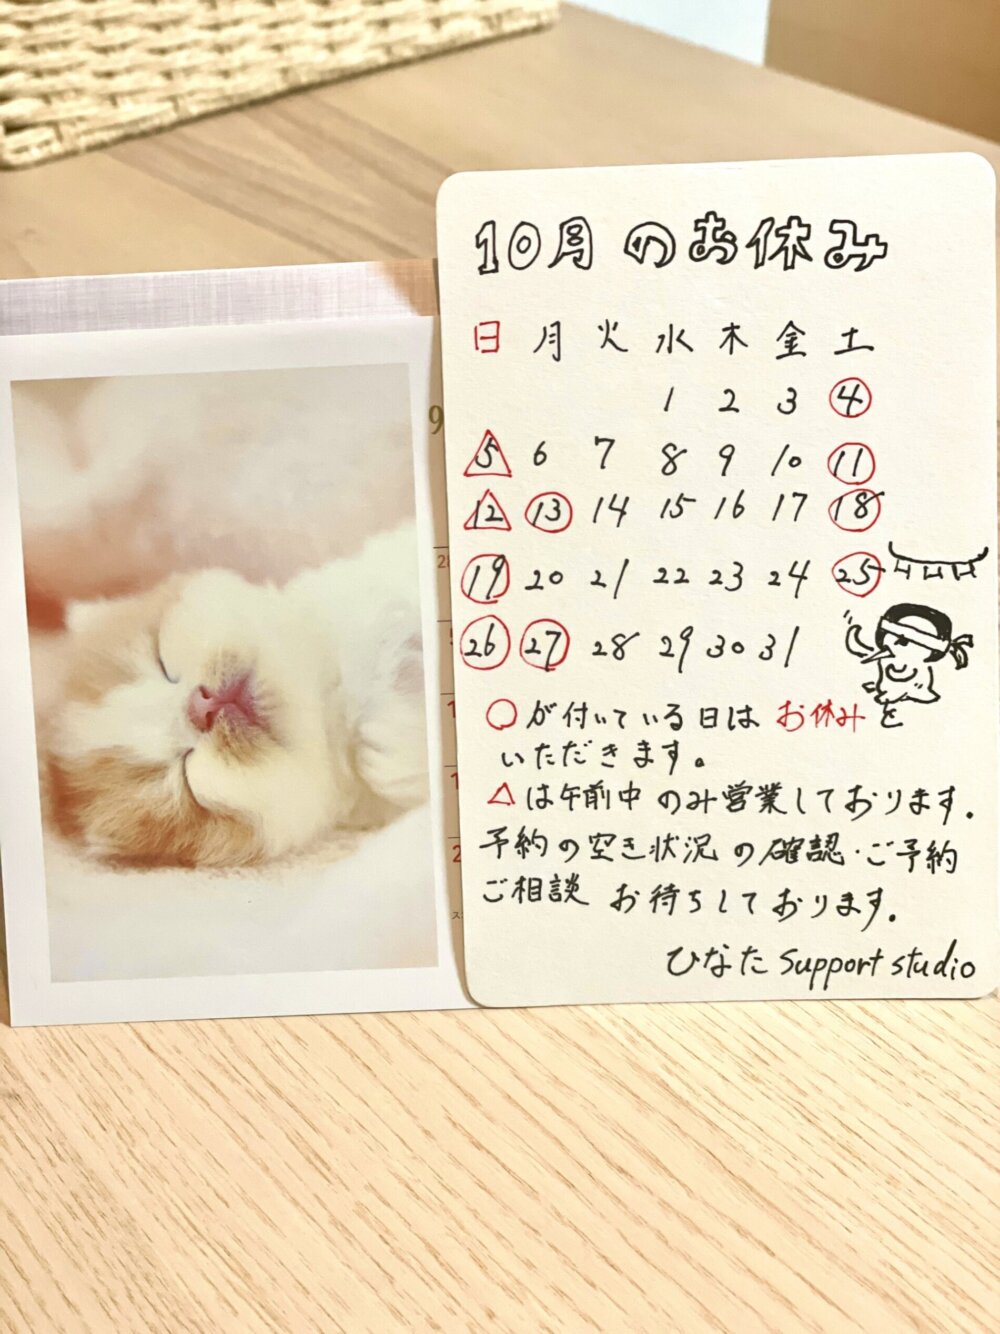 10月のお休み
日 月 火 水 木 金 土
1 2 3 4
5 6 7 8 9 10 11
12 13 14 15 16 17 18
19 20 21 22 23 24 25
26 27 28 29 30 31
○が付いている日はお休みを
いただきます。
△は午前中のみ営業しております.
予約の空き状況の確認・ご予約
ご相談 お待ちしております.
ひなた support studio
9